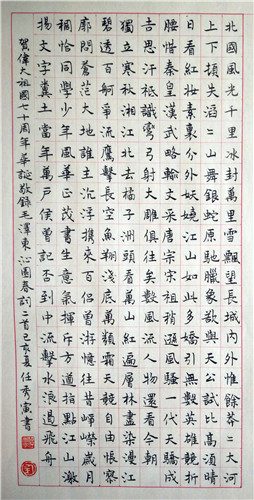 北國風光千里冰封萬里雪飄望長城內外惟餘莽〻大河
上下頓失滔〻山舞銀蛇原馳臘象欲與天公試比高須晴
日看紅妝素裹分外妖嬈江山如此多嬌引無數英雄競折
腰惜秦皇漢武略輸文采唐宗宋祖稍遜風騷一代天驕成
吉思汗祗識彎弓射大雕俱往矣數風流人物還看今朝
獨立寒秋湘江北去橘子洲頭看萬山紅遍層林盡染漫江
碧透百舸爭流鷹擊長空魚翔淺底萬類霜天競自由悵寥
廓問蒼茫大地誰主沉浮攜來百侶曾游憶往昔崢嶸歲月
稠恰同學少年風華正茂書生意氣揮斥方遒指點江山激
揚文字糞土當年萬戶侯曾記否到中流擊水浪遏飛舟
賀偉大祖國七十周年華誕敬錄毛澤東沁園春詞二首己亥夏任秀寅書